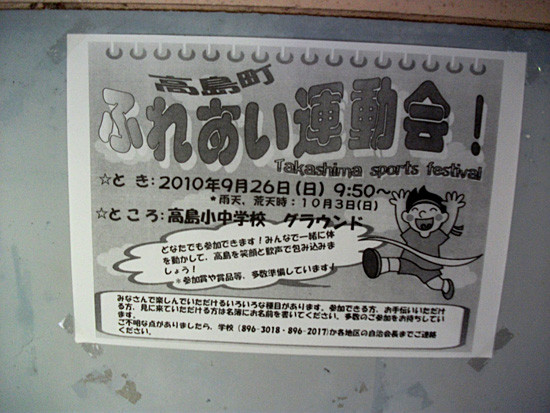 高島町
ふれあい運動会！
Takashima sports festival
☆と き：2010年9月26日(日) 9:50～
*雨天、荒天時：10月3日(日)
☆ところ：高島小中学校 グラウンド
どなたでも参加できます！みんなで一緒に体
を動かして、高島を笑顔と歓声で包み込みま
しょう！
*参加賞や賞品等、多数準備しています！
みなさんで楽しんでいただけるいろいろな種目があります。参加できる方、お手伝いいただけ
る方、見に来ていただける方は名簿にお名前を書いてください。多数のご参加をお待ちしてい
ます。
ご不明な点がありましたら、学校（896-3018・896-2017)か各地区の自治会長までご連絡
ください。